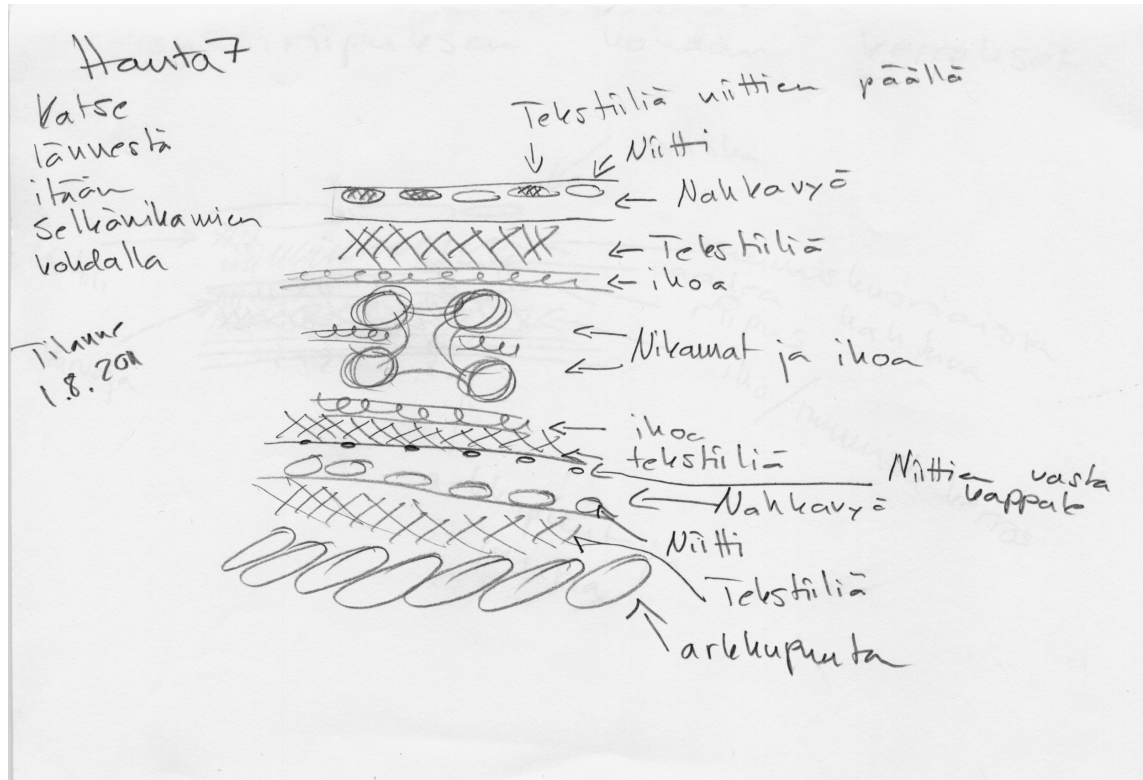 Hauta 7
Katse
lännestä
itään
selkänikamien
kohdalla
Tilanne
1.8.2011
Tekstiiliä niittien päällä
Niitti
Nahkavyö
Tekstiiliä
ihoa
Nikamat ja ihoa
ihoa
tekstiiliä
Niittien vasta
kappale
Nahkavyö
Niitti
Tekstiiliä
arkkupuuta